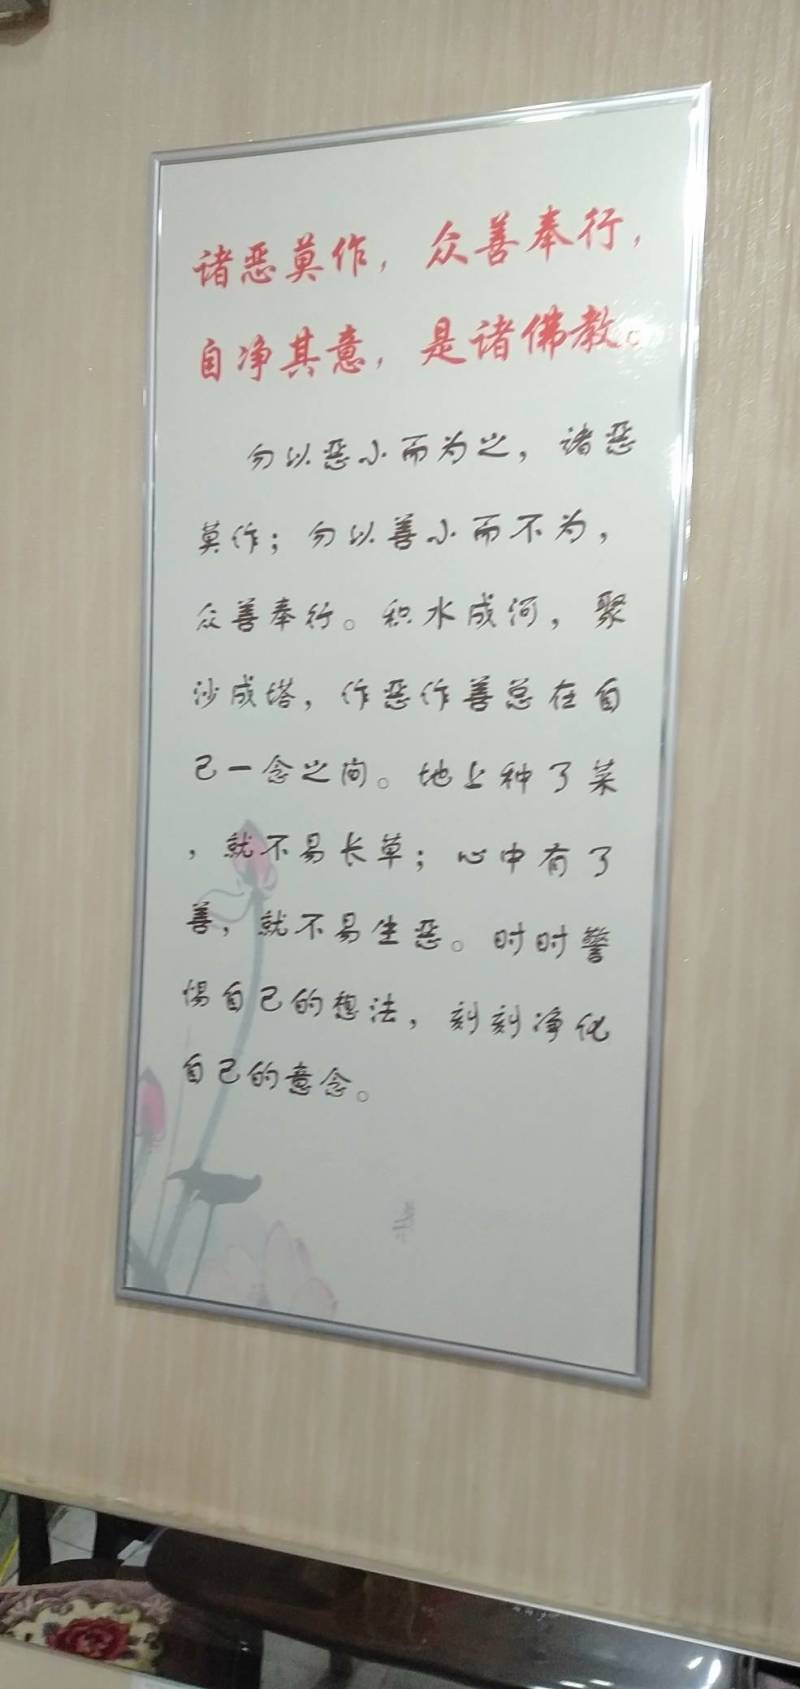 诸恶莫作，众善奉行，
自净其意，是诸佛教。
勿以恶小而为之，诸恶
莫作；勿以善小而不为，
众善奉行。积水成河，聚
沙成塔，作恶作善总在自
己一念之间。地上种了菜
，就不易长草；心中有了
善，就不易生恶。时时警
惕自己的想法，刻刻净化
自己的意念。